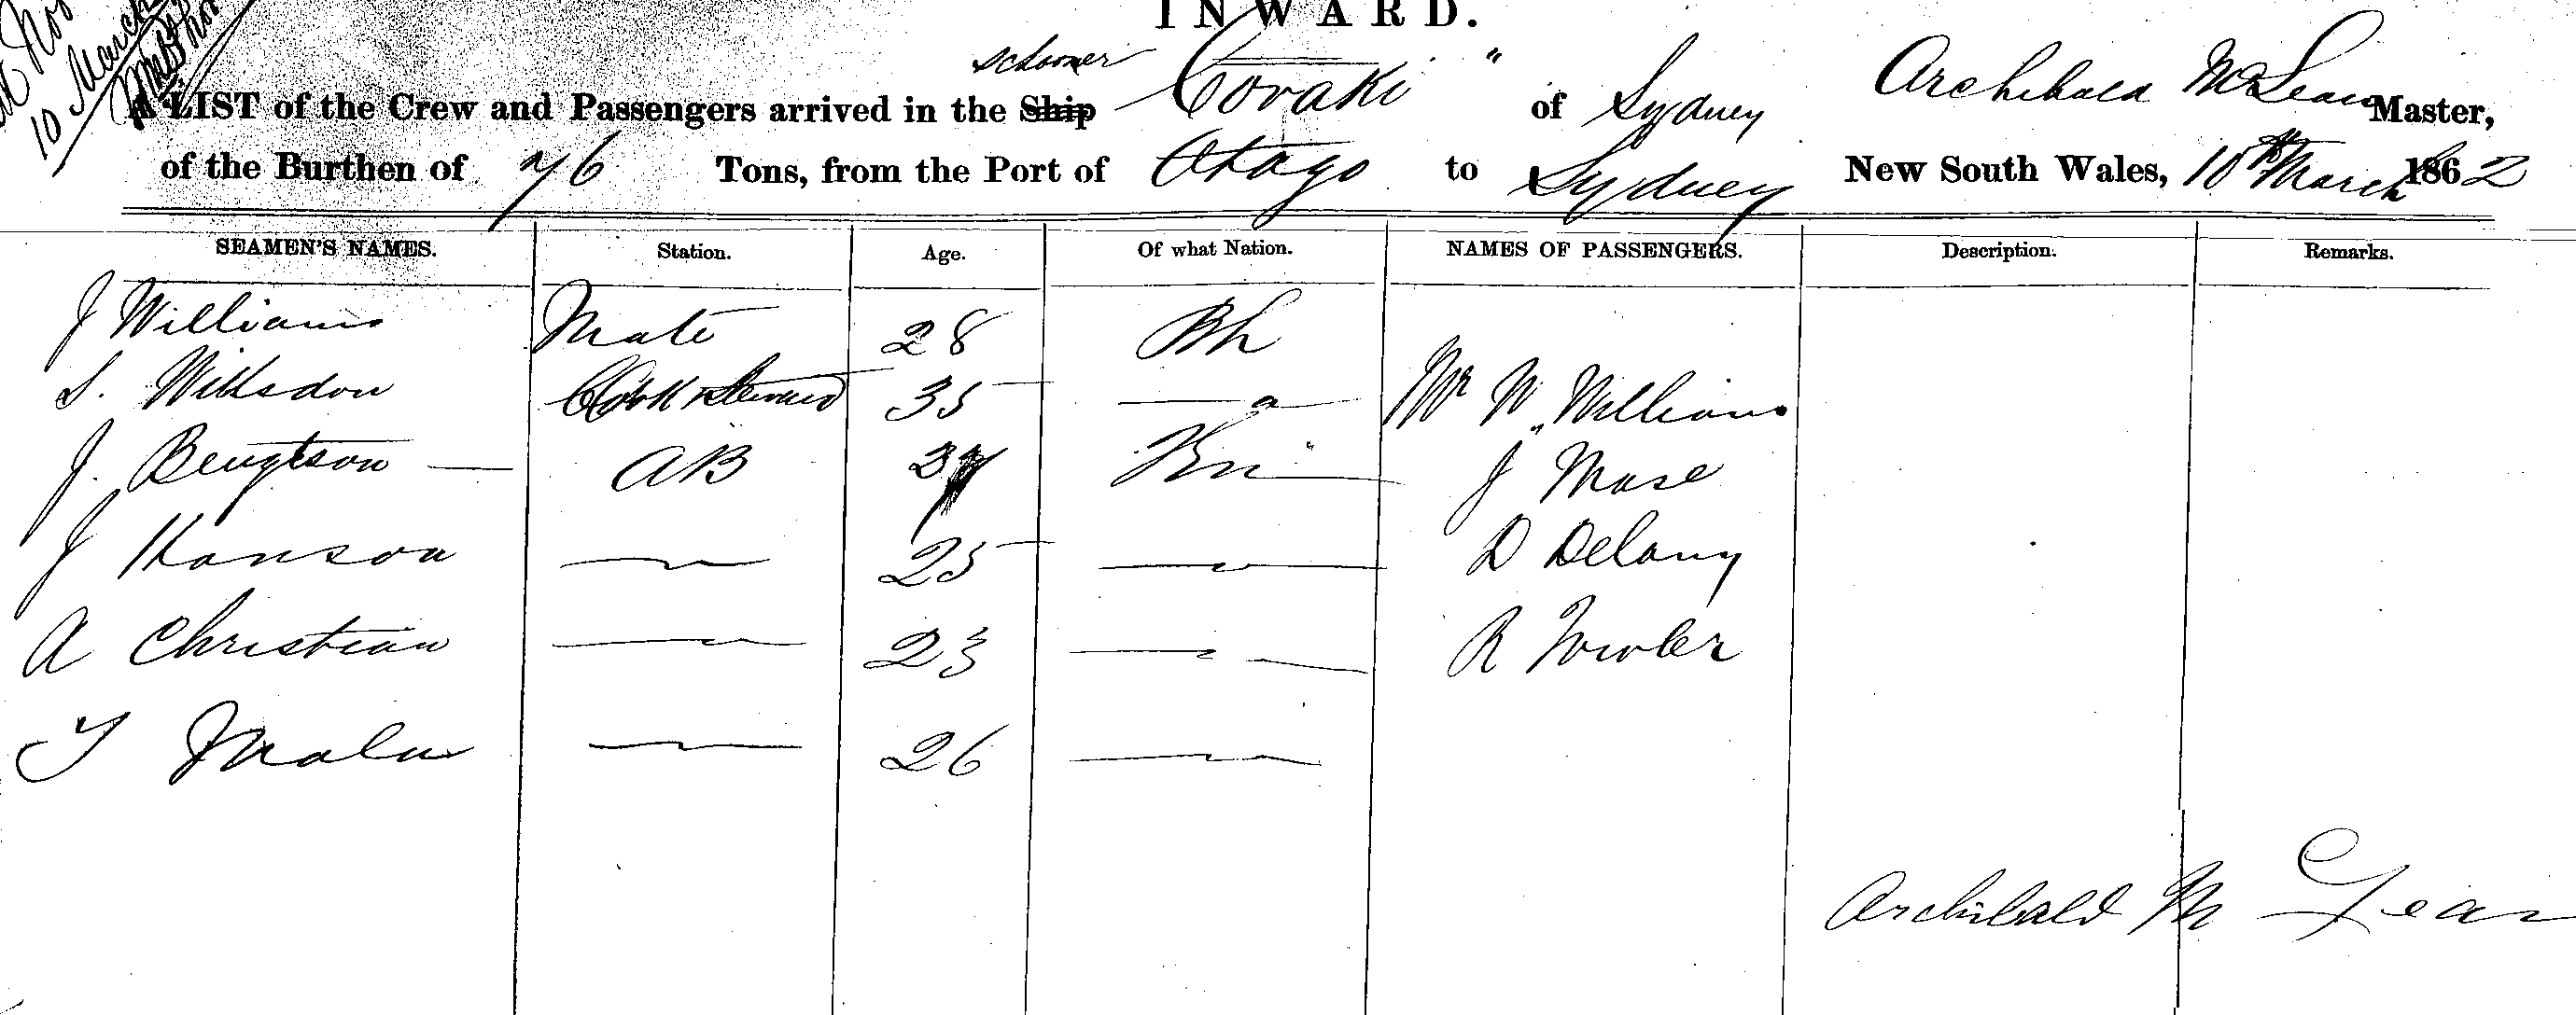 10 March
INWARD.
schooner "Covaki" of Sydney Archibald McLean Master,
A LIST of the Crew and Passengers arrived in the Ship
of the Burthen of 76 Tons, from the Port of Otago to Sydney New South Wales, 10th March 1862
SEAMEN'S NAMES. Station. Age. Of what Nation. NAMES OF PASSENGERS. Description. Remarks.
J Williams Mate 28 Bh
S. Wilksdon Cook & Steward 35 Mr W. Williams
J. Bengtson AB J Mase
J Hanson 25 D Delany
A Christian 23 R Fowler
T 26
Archibald Mc Lean